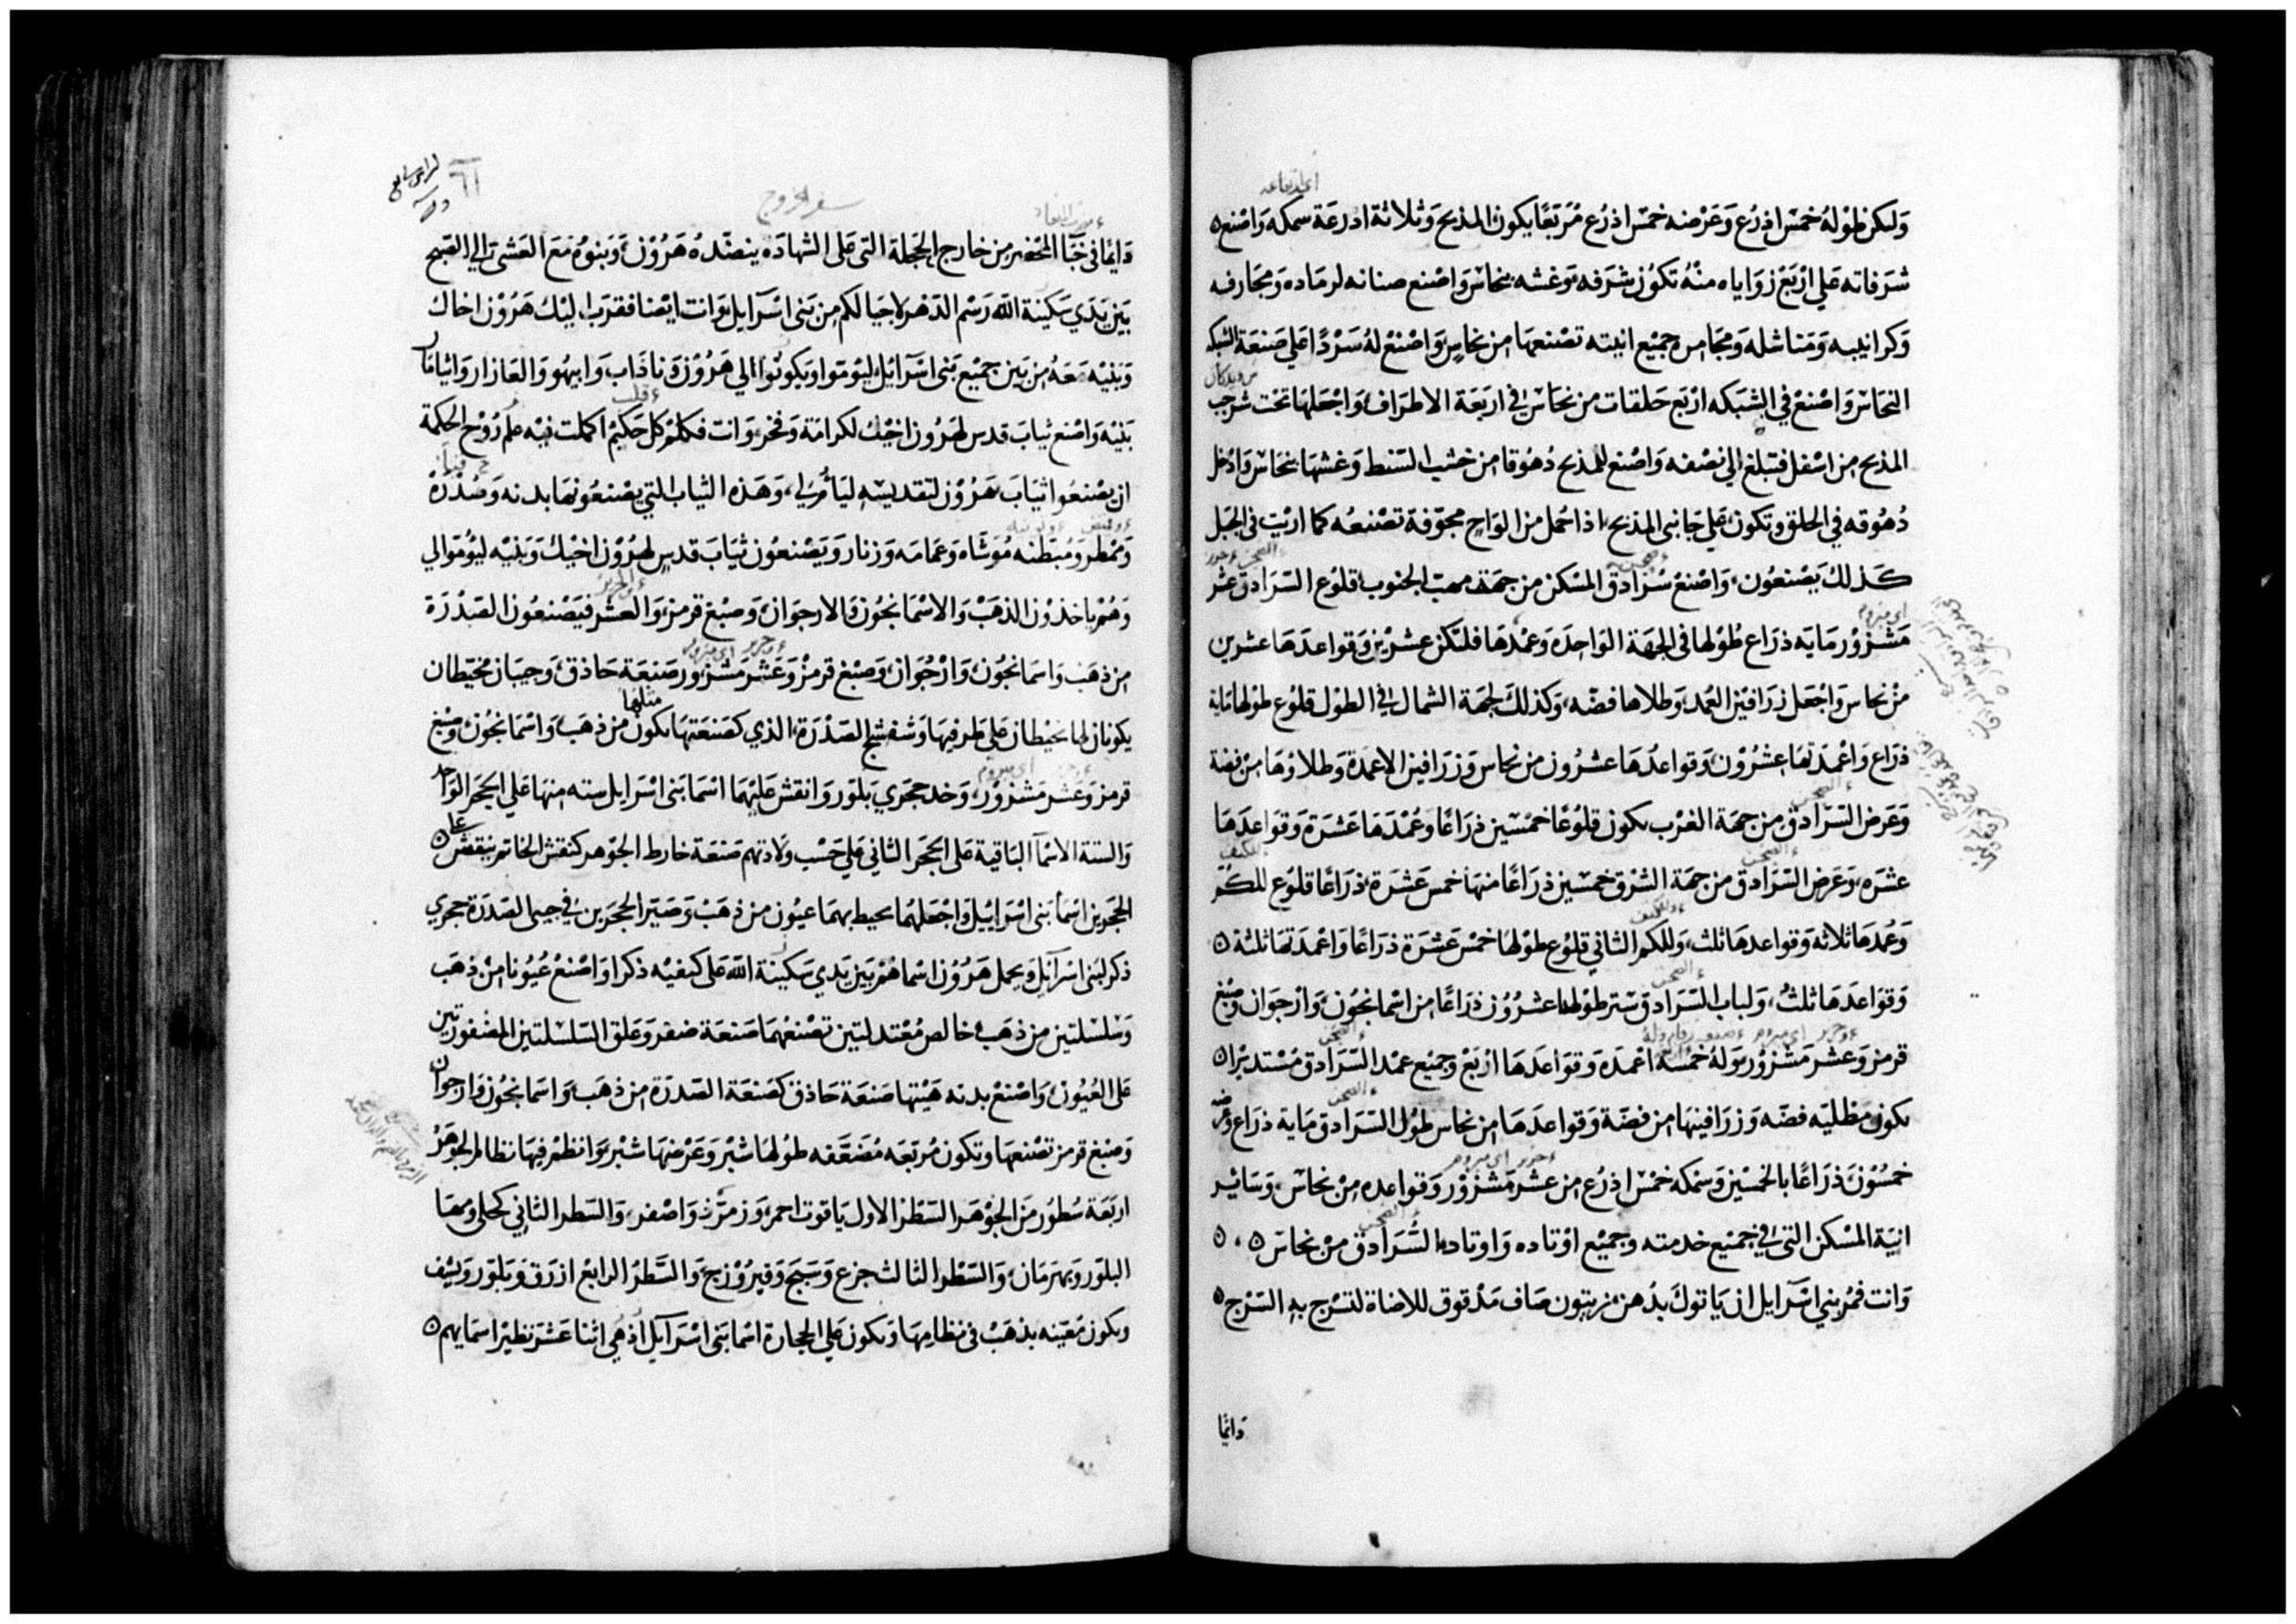 وَليكن طوْلهُ خمسْ اذرُع وَعَرْضه خمسْ اذرُع مُرَبَعًا يكون المذبح وَثلاثة ادرعَة سمكه وَاصْنع ٥
شرَفاته عَلي ارْبَعْ زوَاياه منْهُ تكوُن شرَفه وَغشه بنحاسْ وَاصْنع صنانه لرمَاده وَمجَارفه
وَكرانيبه وَمَناشله وَمجَامره جميْع انيته تصْنعهَا من نحاسٍ وَاصْنعْ لهُ سَرْدًا علي صَنعَة الشبكه
النحَاسْ وَاصْنعْ في الشبَكه ارْبَع حَلقات من نحَاسْ في اربَعَة الاطرَاف وَاجْعَلهَا تحَت شرجب
المذبح من اسْفل فتبلغ الي نصْفه وَاصْنع للمذبح دُهُوقا من خشب السَنط وَغشهَا بنحَاسْ وَادْخل
دُهُوقه في الحلق وتكون عَلي جَانبي المذبح اذا حُمل من الوَاحٍ مجوّفة تصْنعهُ كما ارئتَ في الجبَل
كَذلكَ يَصْنعُون وَاصْنعْ سُرَادق المسْكن من جهَة مهبّ الجنوب قلوُع السَرَادق عشر
مَشزوُر مَايه ذرَاع طوُلها في الجهَة الوَاحدَه وَعمْدهَا فلتكن عشرْين وَقواعدَهَا عشرين
منْ نحاس وَاجْعَل زرَافيْن العُمد وَطلاها فضّه وَكذلكَ لجهَة الشمال في الطوْل قلوُع طوْلها مَاية
ذرَاع وَاعْمدَتهَا عشرُوْن وَقواعدُهَا عشرُون من نحاس وَزرَافيْن الاعمدَة وَطلاوُهَا منْ فضة
وَعَرض السَرَادق من جهَة الغرْب يكون قلوُعًا خمسْين ذرَاعًا وَعُمْدهَا عَشرَة وَقوَاعدَهَا
عشرَه وَعَرض السَرَادق من جهَة الشرْق خمسْين ذرَاعًا منهَا خمس عَشرَة ذرَاعًا قلوُع للكُمّ
وَعُمدهَا ثلاثه وَقواعدهَا ثلث وَللكم الثاني قلوُع طوْلهَا خمسْ عَشرَة ذرَاعًا وَاعْمدَتهَا ثلثة ٥
وَقوَاعدَهَا ثلثْ وَلباب السَرَادق ستر طوْلها عشرُوْن ذرَاعًا من اسْمانجوُن وَارْجوَان وَصبْغ
قرمز وَعشر مَشزوُر وَلهُ خمْسَة اعْمدَه وَقوَاعدَهَا ارْبَعْ وجميْع عمْد السَرَادق مُسْتديْرا ٥
يكون مَطليّه فضّه وَزرَافينهَا من فضّة وَقواعدَهَا من نحاس طوُل السَرَادق مَاية ذرَاع وَعرضه
خمسُوْن ذرَاعًا بالخمْسْين وَسْمكه خمسْ اذرُع من عشر مَشزوْر وَقواعده منْ نحاسْ وَسَائر
انيَة المسْكن التي في جميْع خدمته وَجميْع اوْتاده وَاوتاد السُرَادق منْ نحاسْ ٥ ٥
وَانت فمُر بني اسْرَآيل ان يَاتوكَ بدُهن زيتون صَاف مَدْقوق للاضاة لتسْرج به السَرْج ٥
دَائمًا
٦١
سفر الخروج
دَايمًا في خبَآ المحْضر من خارج الحجَلة التي عَلى الشهادَه ينضّدهُ هَرُوْن وَبَنوْهُ مَعَ العَشي الي الصَبح
بَيْن يَدَي سَكينة الله رَسْم الدَهر لاجيَالكم من بَني اسْرَآيل وَانت ايْضا فقرَب اليْكَ هَرُوْن اخاكَ
وَبَنيْه مَعَهُ من بَين جميْع بَني اسْرَآئل ليَوُمّوا وَيكونوُا الي هَرُوْن وَناذَاب وَابيهُو وَالعَازار وَايْثامَار
بَنيْه وَاصْنع ثيابَ قدس لهَرُون اخيْك لكرامَة وَفخر وَانت فكلمْ كل حَكيْم اكملت فيْه علْم رُوْح الحكمة
ان يصْنعُوا ثيَابَ هَرُوْن لتقديسه ليَأمّ لي وَهَذه الثيابُ التي يصْنعُونهَا بدنه وَصُدْرَة
وَممْطر وَمُبَطنه مُوَشَاه وَعمَامَه وَزنار وَيَصْنعُون ثيَابَ قدس لهَرُوْن اخيْكَ وَبَنيْه ليَوُمّوا لي
وَهُمْ ياخذوْن الذهَبْ وَالاسْمَانجوُن وَالارجوَان وَصبْغ قرمز وَالعشر فيَصْنعُون الصَدْرَة
من ذهَب وَاسمَانجوُن وَارْجُوَان وَصبْغ قرمزْ وَعَشر مَشزوُر صَنعَة حَاذق وَجيبَان مخيَطان
يكونان لها مخيْطان عَلى طرفيهَا وَشفشج الصَدْرَة الذي كصَنعَتهَا مثلها يكون من ذهَب وَاسْمَانجوُن وَصبْغ
قرمز وَعشر مَشزوْر وَخد حجَري بَلوّر وَانقش عَليْهمَا اسْمَا بَني اسْرَايل سته منهَا عَلي الحجَر الوَاحد
وَالستة الاسْمآ البَاقية عَلي الحجَر الثاني عَلي حَسْب ولادتهم صَنعَة خارط الجوْهر كنقش الخاتم ينقش على ٥
الحجَرين اسْمأ بَني اسْرَايْيل وَاجْعَلهُما يحيط بهمَا عيُون من ذهَبْ وَصَيّر الحجَرَين في جيبي الصَدرَة حجَري
ذكر لبَني اسْرَآيل وَيحمل هَرُوْن اسْماهُمْ بَيْن يَدي سَكينة الله عَلى كتفيْه ذكرا وَاصْنعْ عُيُونا منْ ذهَب
وَسْلسْلتين من ذهَب خالص مُعْتدلتَين تصْنعُهمَا صَنعَة ضفر وَعَلق السّلسْلتين المضفورَتين
عَلى العُيُون وَاصْنعْ بدنه هَيْئتها صَنعَة حَاذق كصَنعَة الصَدرَة من ذهَب وَاسمَانجوُن وَارجوَان
وَصبْغ قرمز تصْنعهَا وتكون مُربَعَه مُضعّفه طوُلهَا شبْر وَعَرْضهَا شبْر وَانظمْ فيهَا نظام الجوهَرْ
اربَعَة سُطوُر منَ الجوْهَر السَطرْ الاول يَاقوت احمر وَزمرُّذ وَاصْفر وَالسَطر الثاني كحلي وَمهَا
البلوّر وَبهرَمَان وَالسَطْر الثالث جزع وَسَبَج وَفيرُوْزج وَالسَطرْ الرابعْ ازرَق وَبَلوّر وَيشْف
ويكون مُعَيّنه بذهَبْ في نظامهَا وَيكون عَلي الحجارة اسْمَا بَني اسْرَآيل اذ هي اثنا عَشرَ نظيْر اسمَايهم ٥